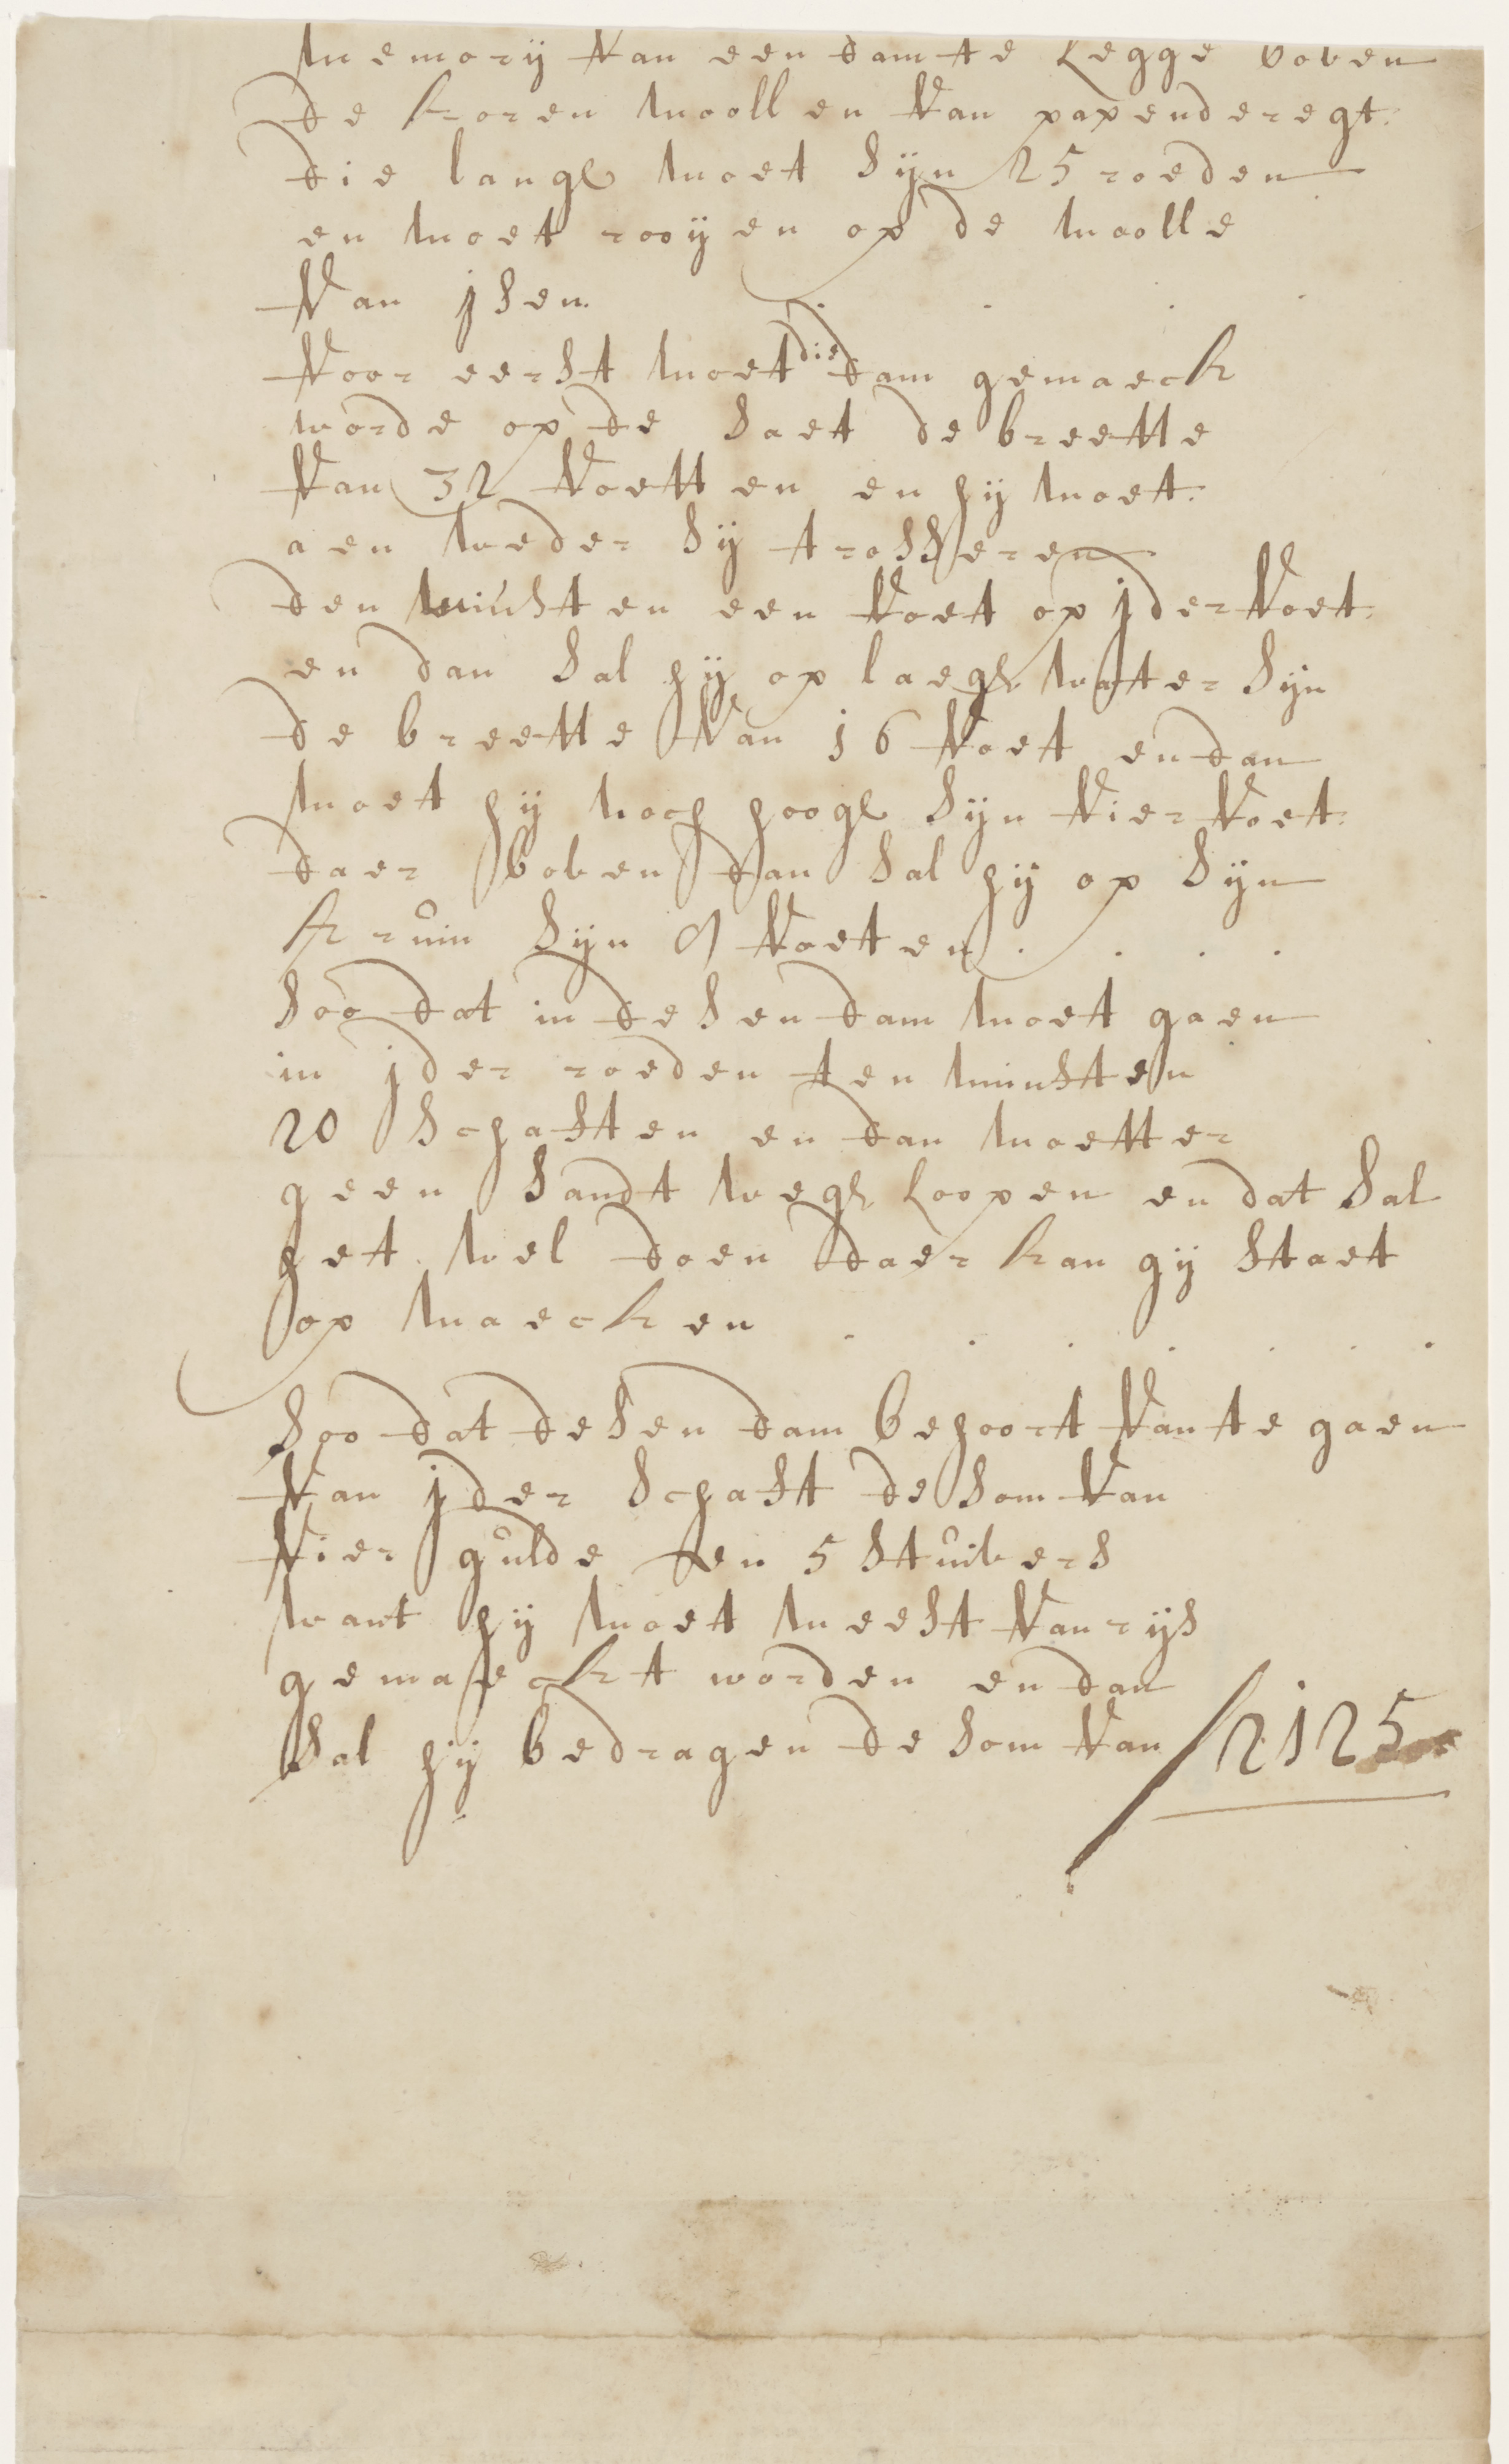 memorÿ van een dam te Legge boven
de koren moollen van papenderegt.
die langh moet sÿn 25 roeden
en moet rooÿen op de moolle
van jsen.
voor eerst moet die dam gemaeck
worde op de saet de breette
van 32 voetten en hÿ moet.
aen weder sÿ trosseren
den minsten een voet op jder voet.
en dan sal hÿ op laegh water sÿn
de breette van 16 voet en dan
moet hÿ noch hoogh sÿn vier voet.
daer boven dan sal hÿ op sÿn
kruin sÿn voeten . . . .
soo dat in desen dam moet gaen
in jder roeden ten minsten
20 schaften en dan moetter
geen sandt wegh Loopen en dat sal
het wel doen daer kan gÿ staet
op maecken . . . . . . .
soo dat desen dam behoort van te gaen
van jder schaft de som van
vier gulde en 5 stuivers
want hÿ moet meest van rÿs
gemaeckt worden en dan
sal hÿ bedragen de som van / 2125